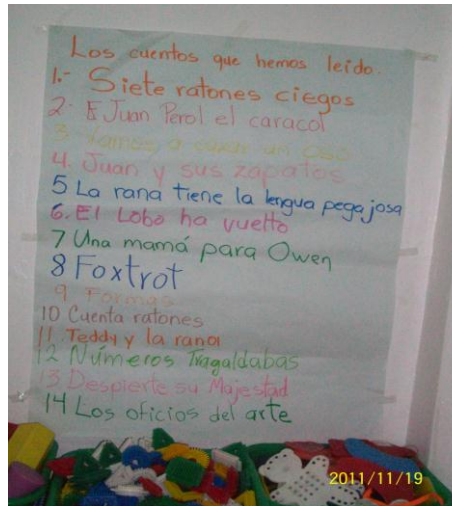 Los cuentos que hemos leído.
1.- Siete ratones ciegos
2. Juan Perol el caracol
3 Vamos a cazar un oso
4. Juan y sus zapatos
5 La rana tiene la lengua pegajosa
6. El Lobo ha vuelto
7 Una mamá para Owen
8 Foxtrot
9 Formas
10 Cuenta ratones
11 Teddy y la rana
12 Números Tragaldabas
13 Despierte su Majestad
14 Los oficios del arte
2011/11/19